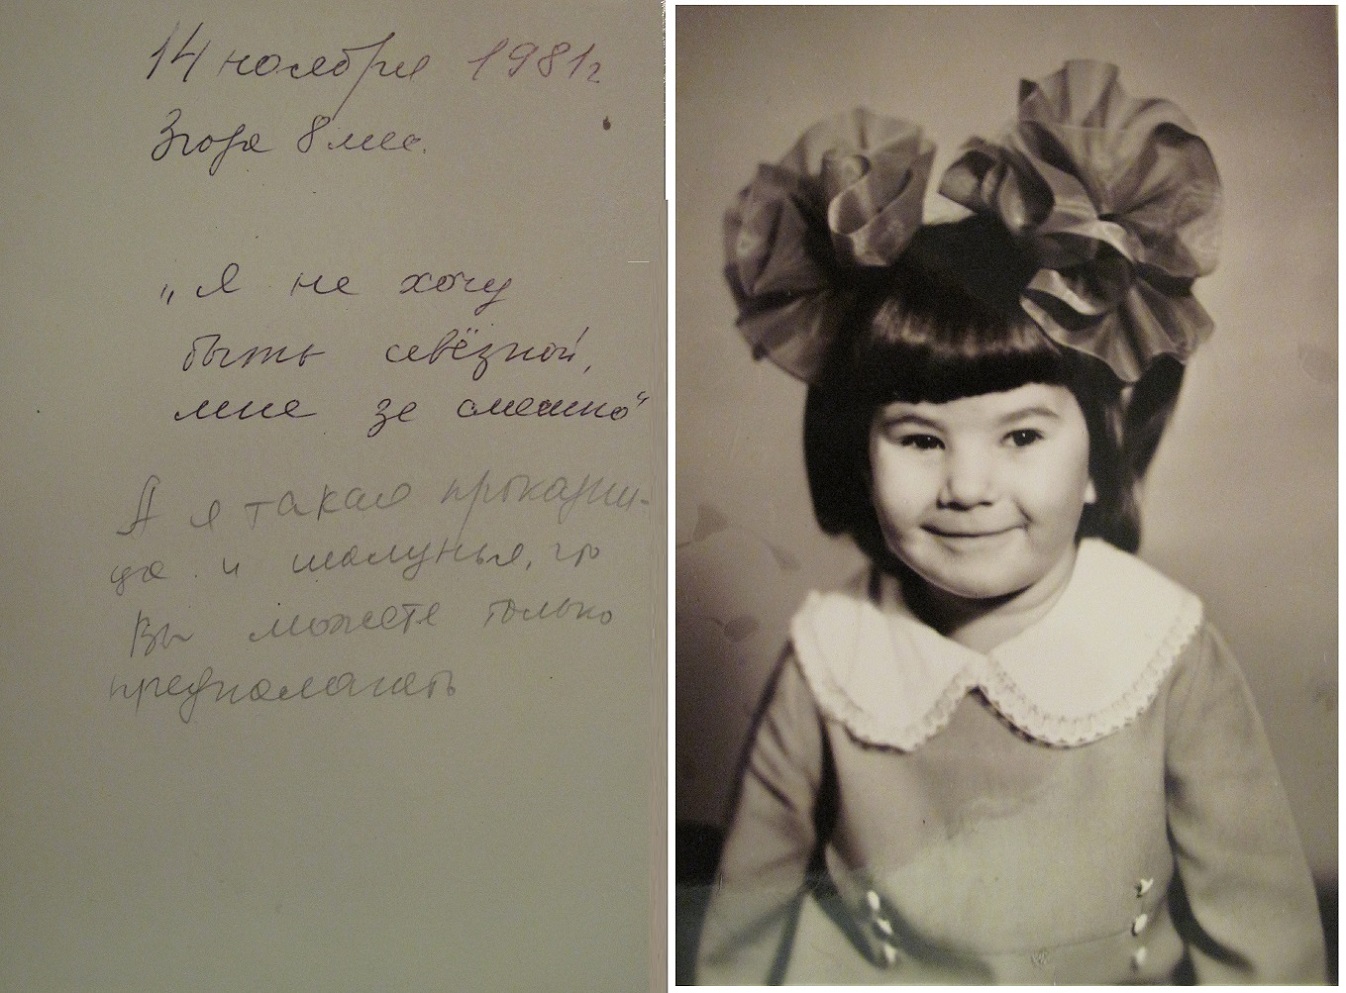 14 ноября 1981г
3 года 8 мес.
„Я не хочу
быть севёзной,
мне зе смешно“
А я такая проказни-
ца и шалунья, что
Вы можете только
предполагать